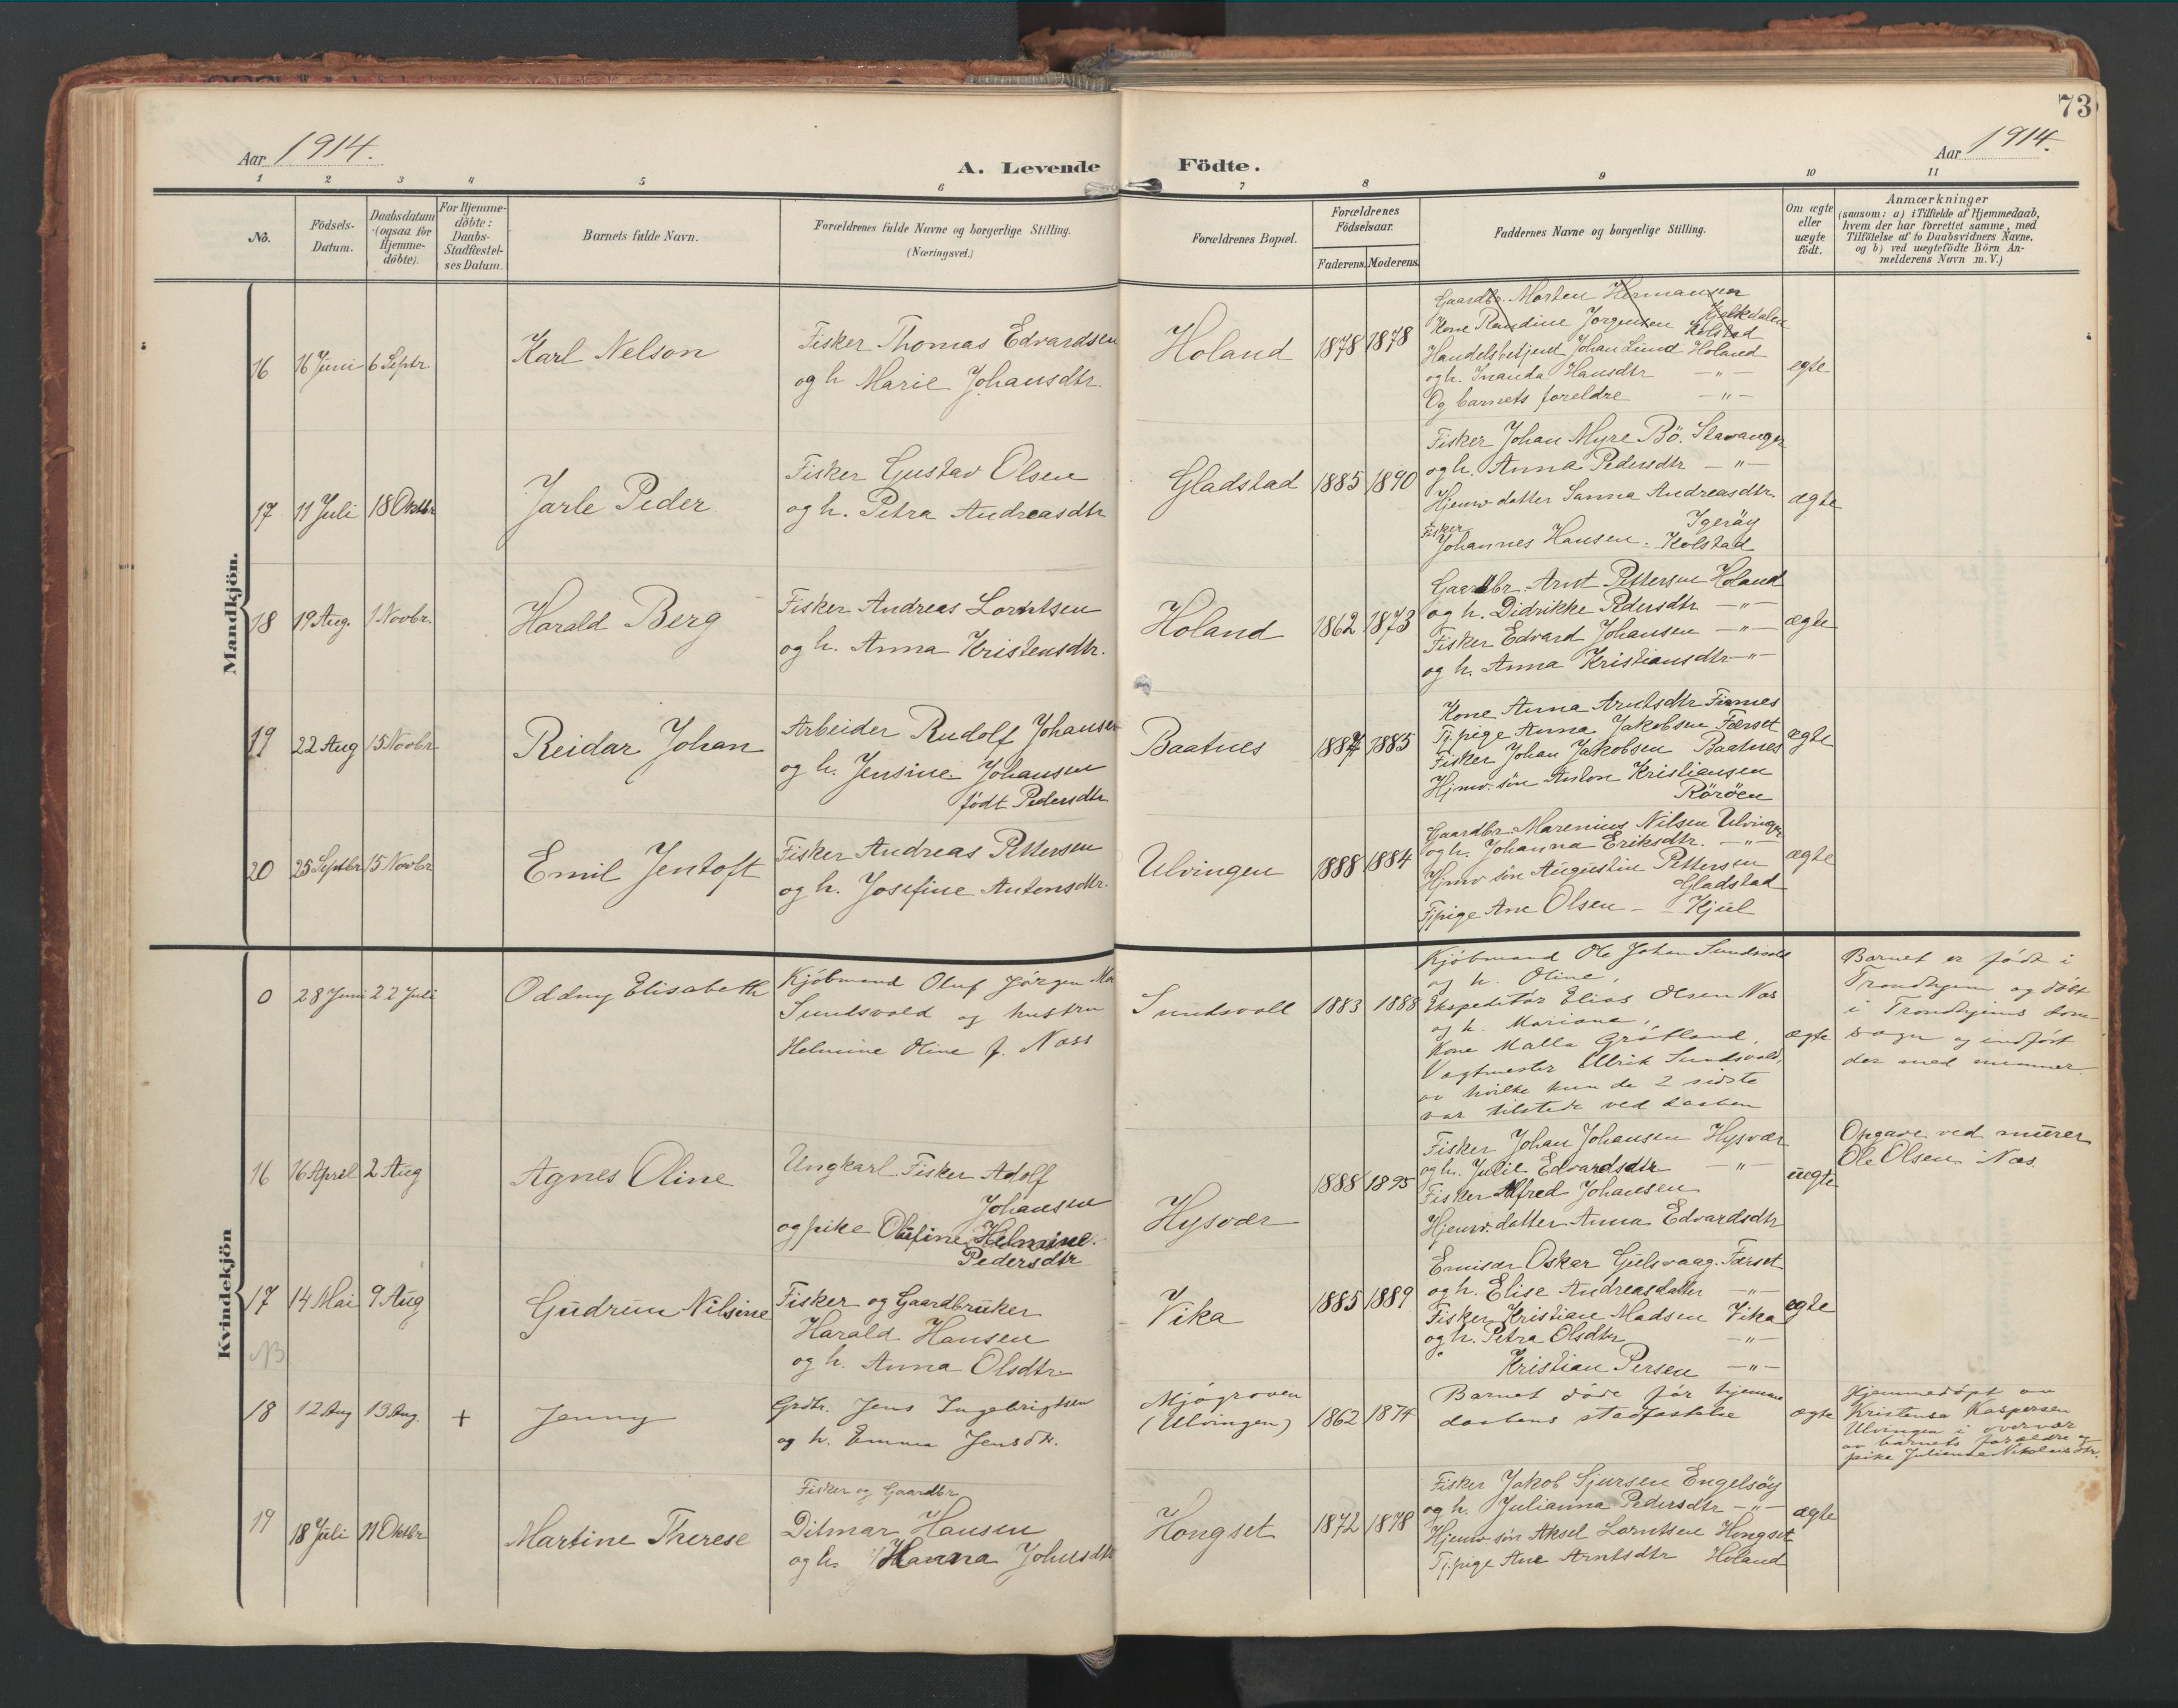 73
Aar 1914.
A. Levende Födte.
Aar 1914.
1 2 3 4 5 6 7 8 9 10 11
No.
Födsels-
Datum.
Daabsdatum
(ogsaa for
Hjemme-
döbte).
For Hjemme-
döbte:
Daabs-
Stadfæstel-
ses Datum.
Barnets fulde Navn.
Forældrenes fulde Navne og borgerlige Stilling.
(Næringsvei.)
Forældrenes Bopæl.
Forældrenes
Födselsaar.
Faderens. Moderens.
Faddernes Navne og borgerlige Stilling.
Om ægte
eller
uægte
födt.
Anmærkninger
(saasom: a) i Tilfælde af Hjemmedaab,
hvem der har forrettet samme, med
Tilföielse af to Daabsvidners Navne,
og b) ved uægtefödte Börn An-
melderens Navn m.V.)
Mandkjön.
16 16 Juni 6 Septr.
Karl Nelson
Fisker Thomas Edvardsen
og h Marie Johansdtr.
Holand
1878 1878
Gaardbr. Morten Hermansen
Kone Randine Jorgensen Kolstad
Handelsbetjent Johan Lind Holand
og h. Inanda Hansdtr — " —
Og barnets foreldre — " —
egte
17 11 Juli 18 Oktbr
Jarle Peder
Fisker Gustav Olsen
og h. Petra Andreasdtr
Gladstad
1885 1890
Fisker Johan Myre Bö. Stavanger
og h. Anna Pedersdtr — " —
Hjemv datter Sanna Andreasdtr.
Igeröy
Fisker
Johannes Hansen. Kolstad
ægte
18 19 Aug. 1 Novbr.
Harald Berg
Fisker Andreas Lorntsen
og h. Anna Kristensdtr.
Holand
1862 1873
Gaardbr Arnt Pettersen Holand
og h. Didrikke Pedersdtr — " —
Fisker Edvard Johansen — " —
og h. Anna Kristiansdtr — " —
ægte
19 22 Aug 15 Novbr
Reidar Johan
Arbeider Rudolf Johansen
og h. Jensine Johansen
födt Pedersdtr.
Baatnes
1884 1885
Kone Anna Arntsdtr Fiænnes
Tj. pige Anna Jakobsen Færset
Fisker Johan Jakobsen Baatnes
Hjmv. sön Anton Kristiansen
Röröen
ægte
20 25 Septbr 15 Novbr
Emil Jentoft
Fisker Andreas Pettersen
og h. Josefine Antonsdtr.
Ulvingen
1888 1884
Gaardbr. Marenius Nilsen Ulvingen
og h. Johanna Eriksdtr. — " —
Hjmv sön Augustin Pettersen
Gladstad
Tjpige Ane Olsen — Kjul
ægte
Kvindekjön
0 28 Juni 22 Juli
Oddny Elisabeth
Kjöbmand Oluf Jörgen
Sundsvold og hustru
Helmine Oline f. Næss
Sundsvoll
1883 1888
Kjöbmand Ole Johan Sundsvoll
og h. Oline,
Ekspeditör Elias Olsen Næs
og h. Mariane,
Kone Malla Gråtland,
Vagtmester Ulrik Sundsvold,
av hvilke kun de 2 sidste
var tilstede ved daaben
ægte
Barnet er född i
Trondhjem og döbt
i Trondhjems Dom-
sogn og indfört
der med nummer.
16 16 April 2 Aug
Agnes Oline
Ungkarl Fisker Adolf
Johansen
og pike Olufine Helmine
Pedersdtr
Hysvær
1888 1895
Fisker Johan Johansen Hysvær
og h. Julie Edvardsdtr — " —
Fisker Alfred Johansen
Hjemv. datter Anna Edvardsdtr
uegte
Opgave ved murer
Ole Olsen Næs.
17 14 Mai 9 Aug
Gudrun Nilsine
Fisker og Gaardbruker
Harald Hansen
og h. Anna Olsdtr
Vika
1885 1889
Emisær Oskar Gjelsvaag. Færset
og h. Elise Andreasdatter — " —
Fisker Kristian Madsen Vika
og h. Petra Olsdtr — " —
Kristian Persen — " —
egte
NB
18 12 Aug 13 Aug. +
Jenny
Grdbr. Jens Ingebrigtsen
og h. Emma Jensdtr.
Mjögroven
(Ulvingen)
1862 1874
Barnet döde för hjemme
daabens stadfæstelse
ægte
Hjemmedöpt av
Kristensa Kaspersen
Ulvingen i overvær
av barnets forældre og
pike Julianne Nikolaisdtr.
19 18 Juli 11 Oktbr
Martine Therese
Fisker og Gaardbr
Ditmar Hansen
og h. Hanna Johnsdtr
Hongset
1872 1878
Fisker Jakob Sjursen Engelsöy
og h. Julianna Pedersdtr — " —
Hjemv sön Aksel Lorntsen Hongset
Tj. pige Ane Arntsdtr Holand
ægte